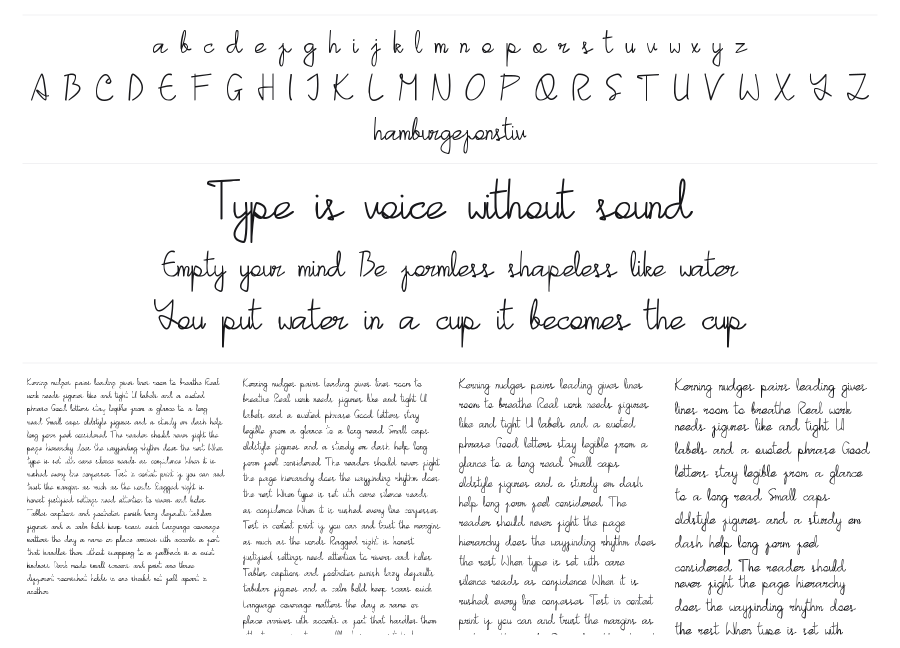 a b c d e f g h i j k l m n o p q r s t u v w x y z
A B C D E F G H I J K L M N O P Q R S T U V W X Y Z
hamburgefonstiv
Type is voice without sound
Empty your mind Be formless shapeless like water
You put water in a cup it becomes the cup
Kerning nudges pairs leading gives lines room to breathe Real
work needs figures like and tight UI labels and a quoted
phrase Good letters stay legible from a glance to a long
read Small caps oldstyle figures and a sturdy em dash help
long form feel considered The reader should never fight the
page hierarchy does the wayfinding rhythm does the rest When
type is set with care silence reads as confidence When it is
rushed every line confesses Test in context print if you can and
trust the margins as much as the words Ragged right is
honest justified settings need attention to rivers and holes
Tables captions and footnotes punish lazy defaults tabular
figures and a calm bold keep scans quick Language coverage
matters the day a name or place arrives with accents a font
that handles them
Kerning nudges pairs leading gives lines room to
breathe Real work needs figures like and tight UI
labels and a quoted phrase Good letters stay
legible from a glance to a long read Small caps
oldstyle figures and a sturdy em dash help long
form feel considered The reader should never fight
the page hierarchy does the wayfinding rhythm does
the rest When type is set with care silence reads
as confidence When it is rushed every line confesses
Test in context print if you can and trust the margins
as much as the words Ragged right is honest
justified settings need attention to rivers and holes
Tables captions and footnotes punish lazy defaults
tabular figures and a calm bold keep scans quick
Language coverage matters the day a name or
place arrives with accents a font that handles them
Kerning nudges pairs leading gives lines
room to breathe Real work needs figures
like and tight UI labels and a quoted
phrase Good letters stay legible from a
glance to a long read Small caps
oldstyle figures and a sturdy em dash
help long form feel considered The
reader should never fight the page
hierarchy does the wayfinding rhythm does
the rest When type is set with care
silence reads as confidence When it is
rushed every line confesses Test in context
print if you can and trust the margins as
Kerning nudges pairs leading gives
lines room to breathe Real work
needs figures like and tight UI
labels and a quoted phrase Good
letters stay legible from a glance
to a long read Small caps
oldstyle figures and a sturdy em
dash help long form feel
considered The reader should
never fight the page hierarchy
does the wayfinding rhythm does
the rest When type is set with